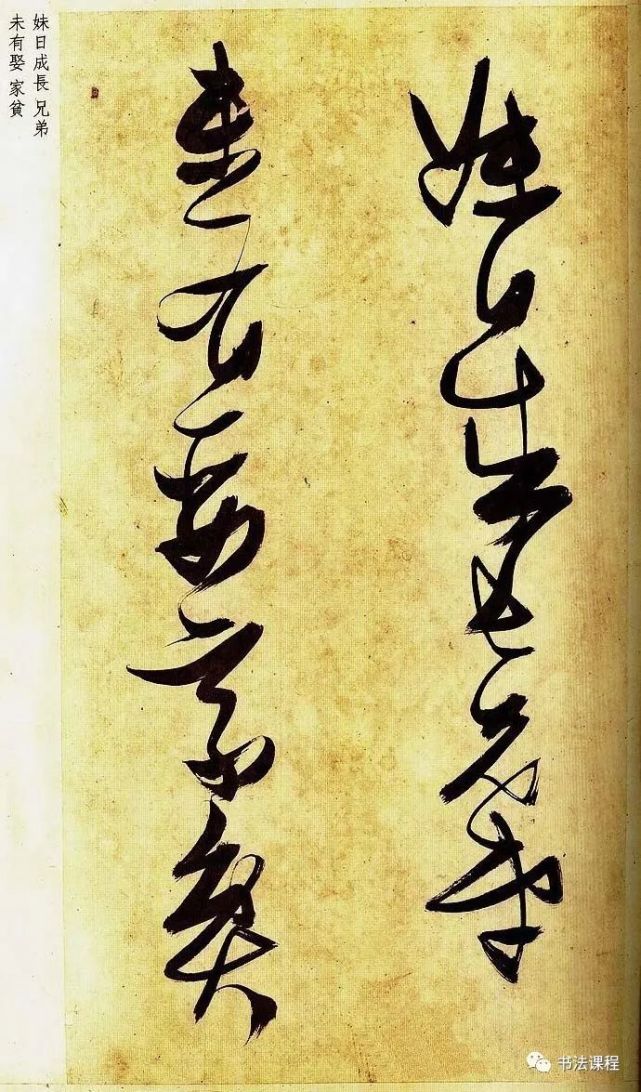 妹日成長兄弟
未有娶家貧
妹日成長 兄弟
未有娶 家貧
书法课程